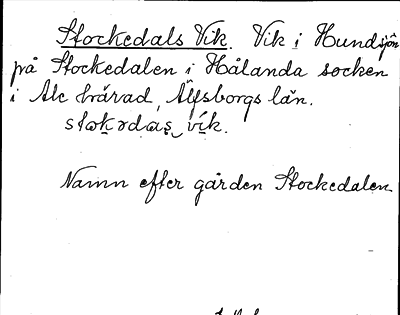 Stockedals Vik. Vik i Hundsjön
på Stockedalen i Hålanda socken
i Ale härad, Älfsborgs län.
vík.
Namn efter gården Stockedalen